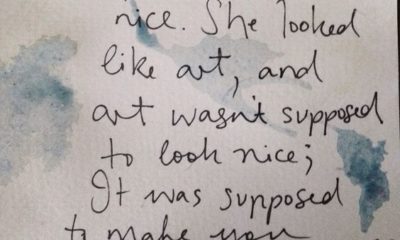 nice. She looked
like art, and
art wasn't supposed
to look nice;
It was supposed
to make you